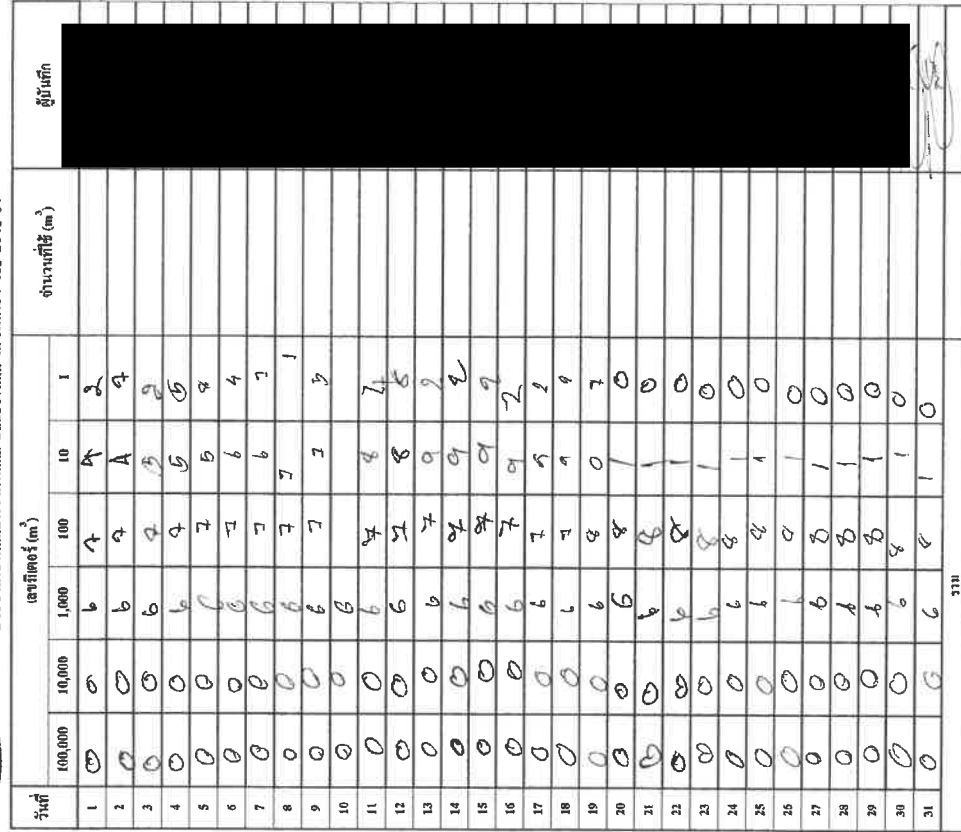 วันที่ เลขมิเตอร์ (m³) จำนวนที่ใช้ (m³) ผู้บันทึก
100,000 10,000 1,000 100 10 1
1 0 0 6 7 4 2
2 0 0 6 7 4 7
3 0 0 6 7 5 2
4 0 0 6 7 5 5
5 0 0 6 7 5
6 0 0 6 7 6 4
7 0 0 6 7 6
8 0 0 6 7 7 1
9 0 0 6 7 7 5
10 0 0 6
11 0 0 6 7 8
12 0 0 6 7 8 6
13 0 0 6 7 9 2
14 0 0 6 7 9
15 0 0 6 7 9 2
16 0 0 6 7 9 2
17 0 0 6 7 9 2
18 0 0 6 7 9
19 0 0 6 8 0 7
20 0 0 6 8 1 0
21 0 0 6 8 1 0
22 0 0 6 8 1 0
23 0 0 6 8 1 0
24 0 0 6 8 1 0
25 0 0 6 8 1 0
26 0 0 6 8 1 0
27 0 0 6 8 1 0
28 0 0 6 8 1 0
29 0 0 6 8 1 0
30 0 0 6 8 1 0
31 0 0 6 8 1 0
รวม